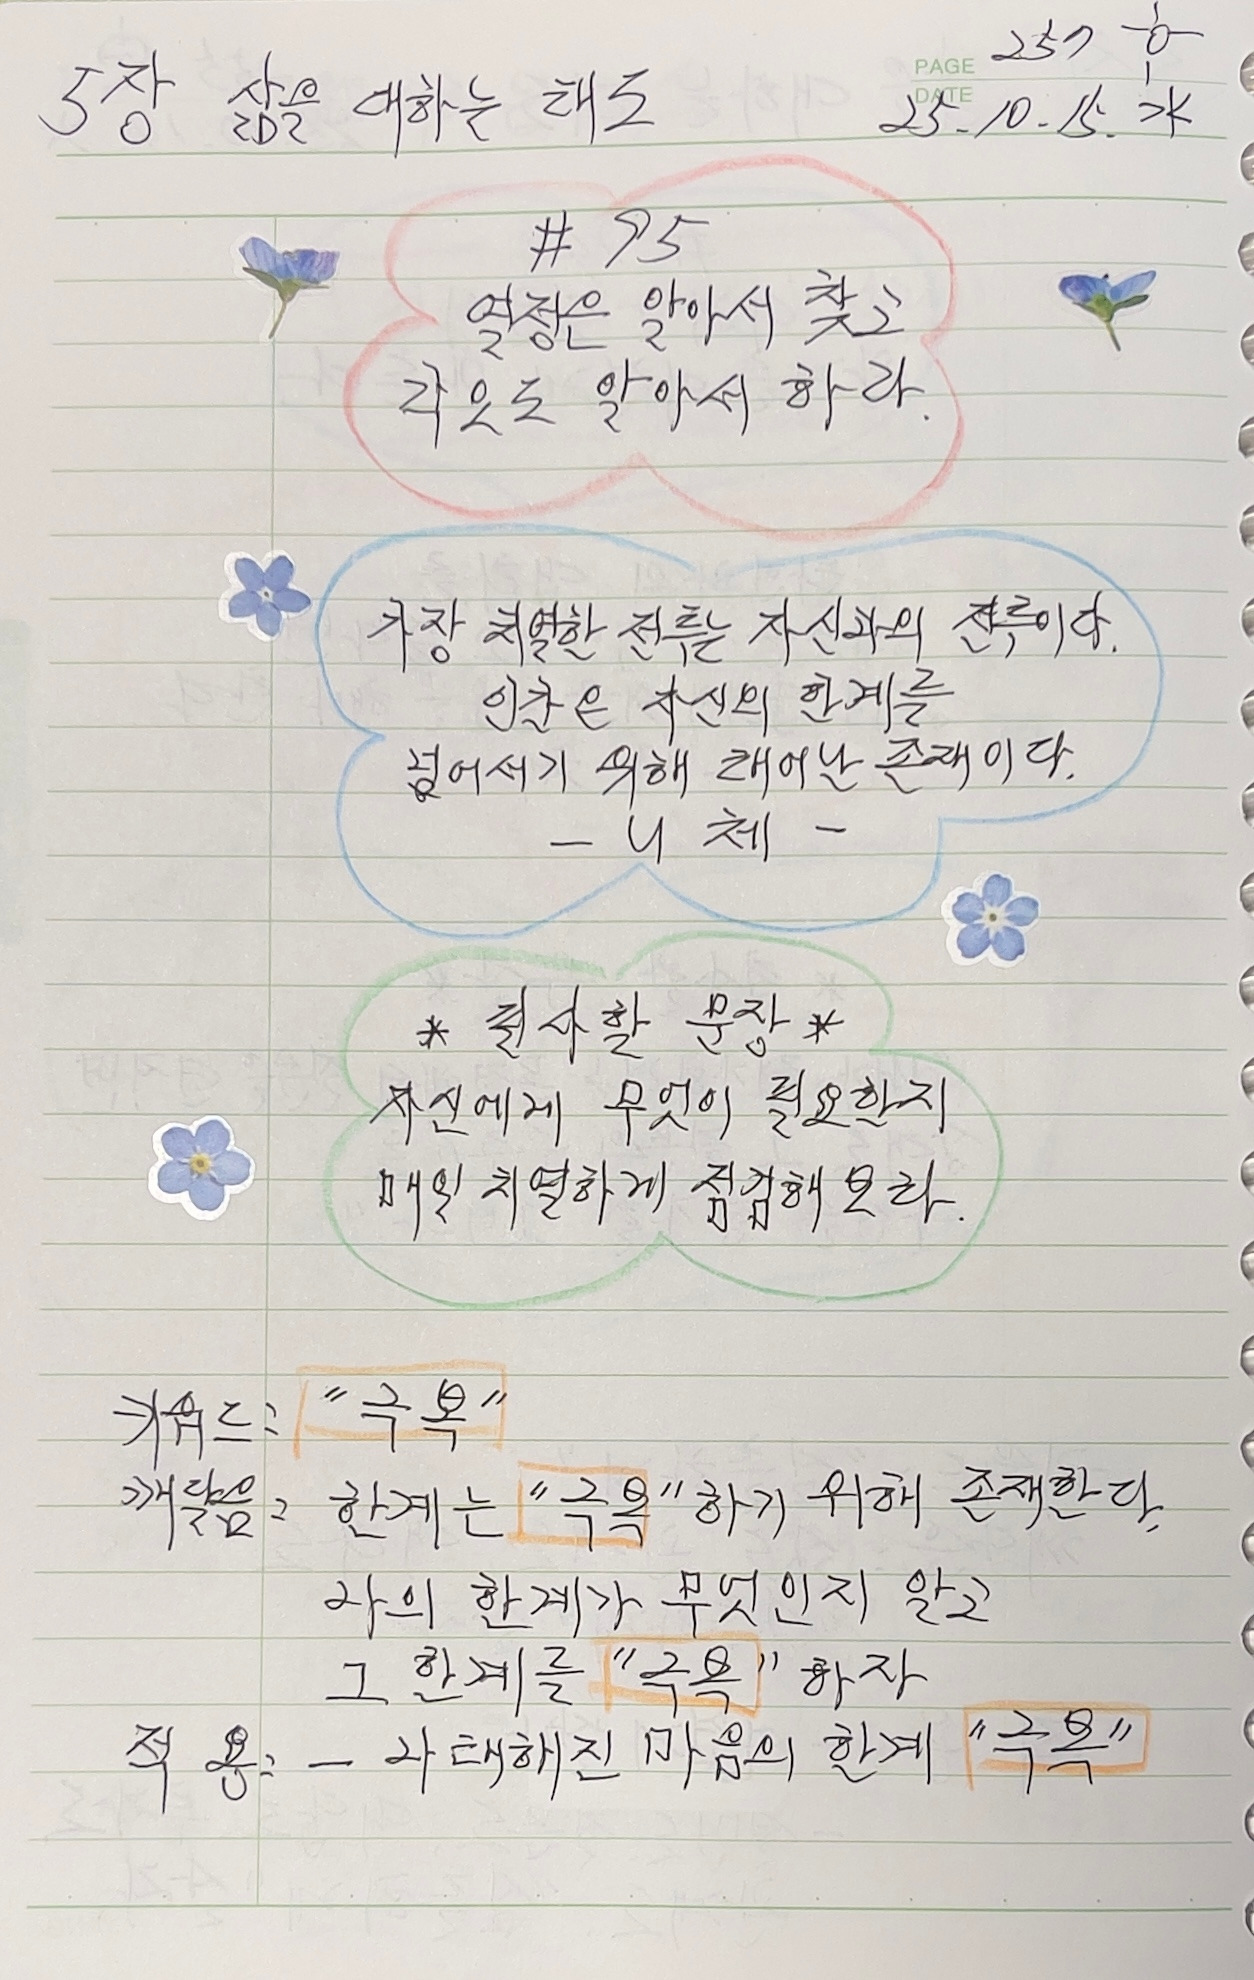 PAGE 257 쪽
5장 삶을 대하는 태도
DATE 25.10.15. 水
# 95
열정은 알아서 찾고
각오도 알아서 하라.
가장 치열한 전투는 자신과의 전투이다.
인간은 자신의 한계를
넘어서기 위해 태어난 존재이다.
- 니체 -
* 필사할 문장 *
자신에게 무엇이 필요한지
매일 치열하게 점검해 보라.
키워드: "극복"
깨달음: 한계는 "극복"하기 위해 존재한다.
나의 한계가 무엇인지 알고
그 한계를 "극복"하자
적용: - 나태해진 마음의 한계 "극복"